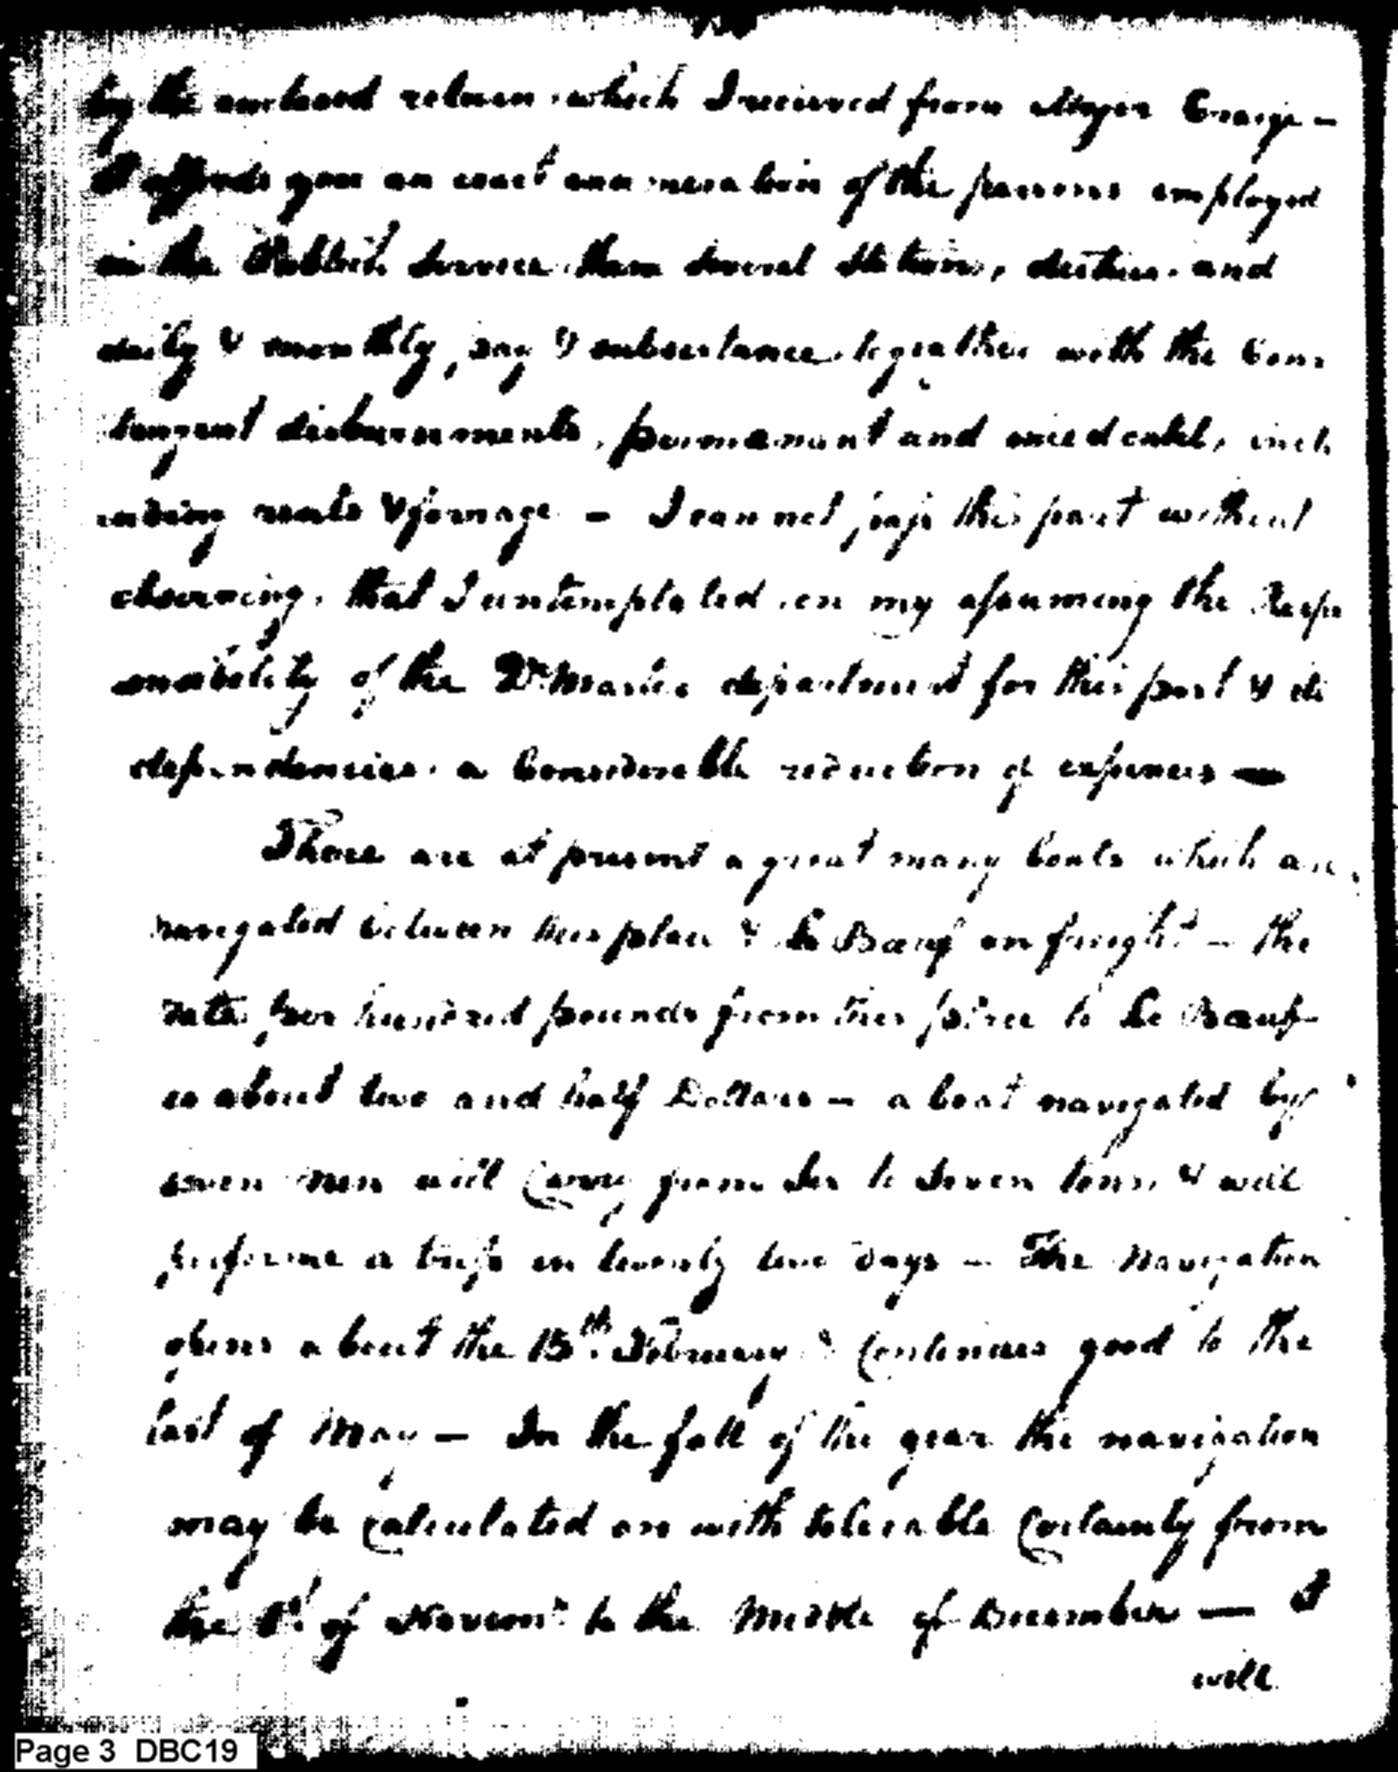 by the enclosed return which I received from Major Craige –
It affords you an exact enumeration of the persons employed
in the Publick Service their several Stations, duties and
daily & monthly, pay & subsistance togeather with the Con-
tengent disbursements, permanant and incedental, incl
uding rents & forrage – I can not pass this part without
observing, that I contemplated on my assuming the Respo
nsibility of the Qr. Master department for this post & its
dependencies a Considerable reduction of expences —
There are at present a great many boats which are
navigated between this place & Le Bœuf on freight – the
rate per hundred pounds from this place to Le Bœuf
is about two and half Dollars – a boat navigated by
seven men will Carry from Six to Seven tons, & will
performe a trip in twenty two days – The Navigation
opens about the 15th. February & Continues good to the
last of May – In the fall of the year the navigation
may be Calculated on with tolerable Certainty from
the 1st. of Novemr. to the Middle of December — I
will
Page 3 DBC19